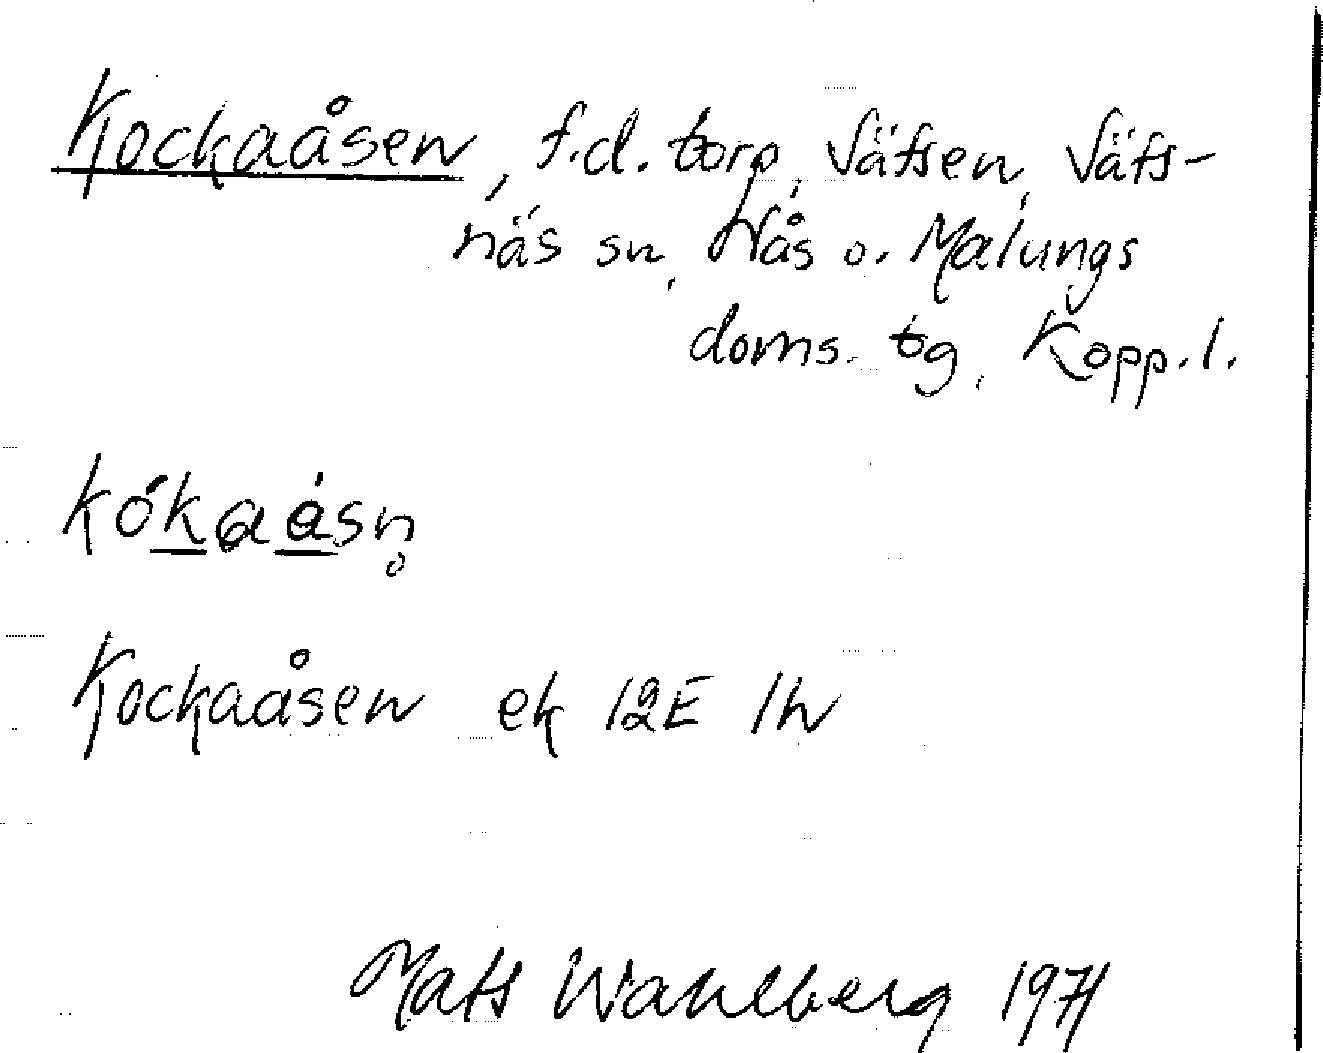 Kockaåsen, f.d. torp, Vätsen, Väts-
näs sn, Nås o. Malungs
doms. tg, Kopp. l.
kókaásn̥
Kockaåsen ek 12E 1h
Mats Wahlberg 1971